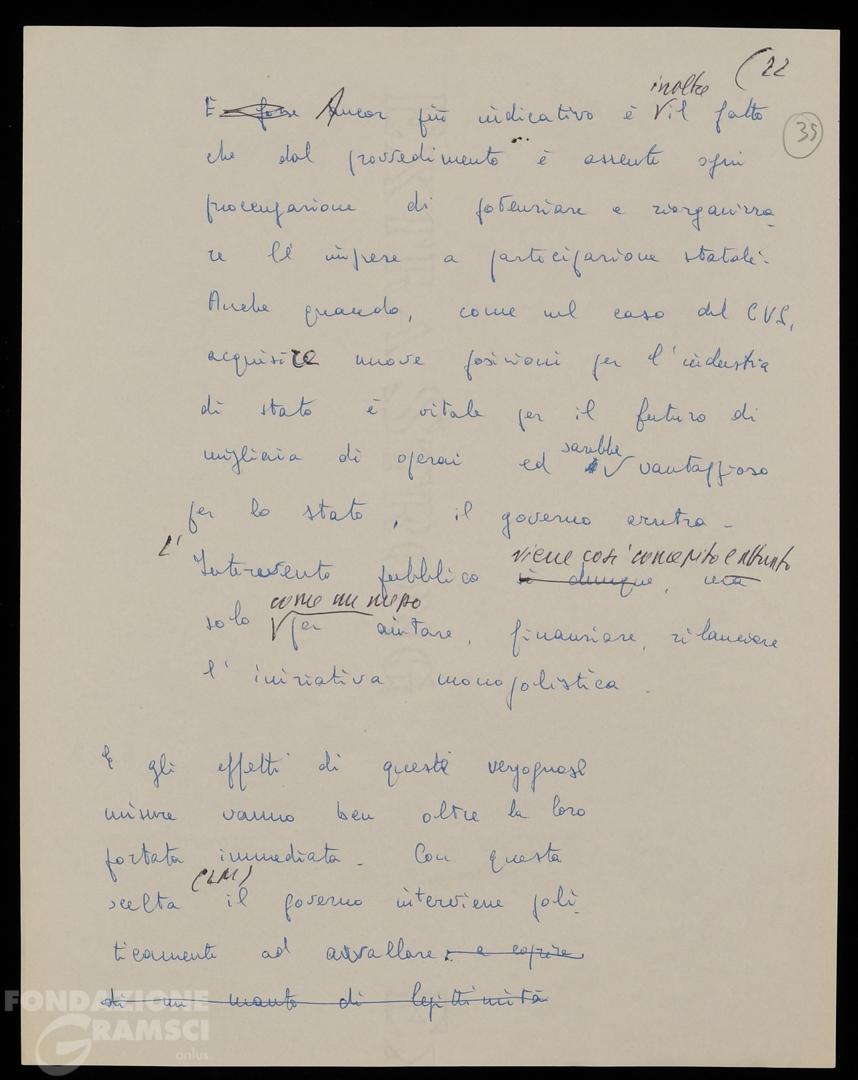 (22
inoltre
E forse Ancor più indicativo è il fatto
35
che dal provvedimento è assente ogni
preoccupazione di potenziare e riorganizza-
re le imprese a partecipazione statale.
Anche quando, come nel caso del CVS,
acquisire nuove posizioni per l'industria
di stato è vitale per il futuro di
migliaia di operai ed sarebbe vantaggioso
per lo stato, il governo arretra -
L' viene così concepito e attuato
Intervento pubblico si dunque, ma
come un mezzo
solo per aiutare, finanziare, rilanciare
l'iniziativa monopolistica.
E gli effetti di queste vergognose
misure vanno ben oltre la loro
portata immediata. Con questa
scelta (LM) il governo interviene poli-
ticamente ad avvallare. e coprire
di un manto di legittimità
FONDAZIONE
GRAMSCI
onlus